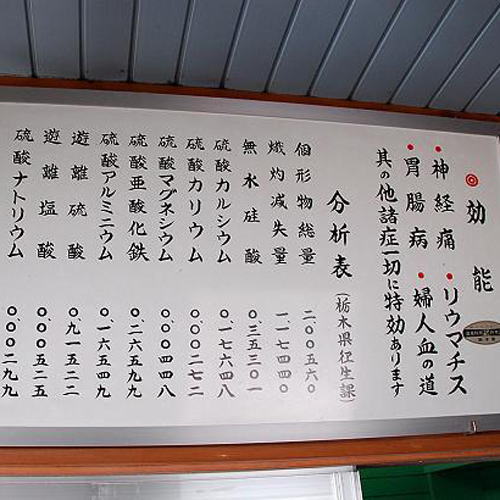 ◎効能
・神経痛 ・リウマチス
・胃腸病 ・婦人血の道
其の他諸症一切に特効あります
分析表 (栃木県衛生課)
個形物総量 二、〇〇五六〇
熾灼減失量 一、一七四四〇
無水硅酸 〇、三五三〇一
硫酸カルシウム 〇、一七六四八
硫酸カリウム 〇、〇〇二七二
硫酸マグネシウム 〇、〇〇四四八
硫酸亜酸化鉄 〇、二六五七九
硫酸アルミニウム 〇、一六五四九
遊離硫酸 〇、九一五二二
遊離塩酸 〇、〇〇五二五
硫酸ナトリウム 〇、〇〇二九九